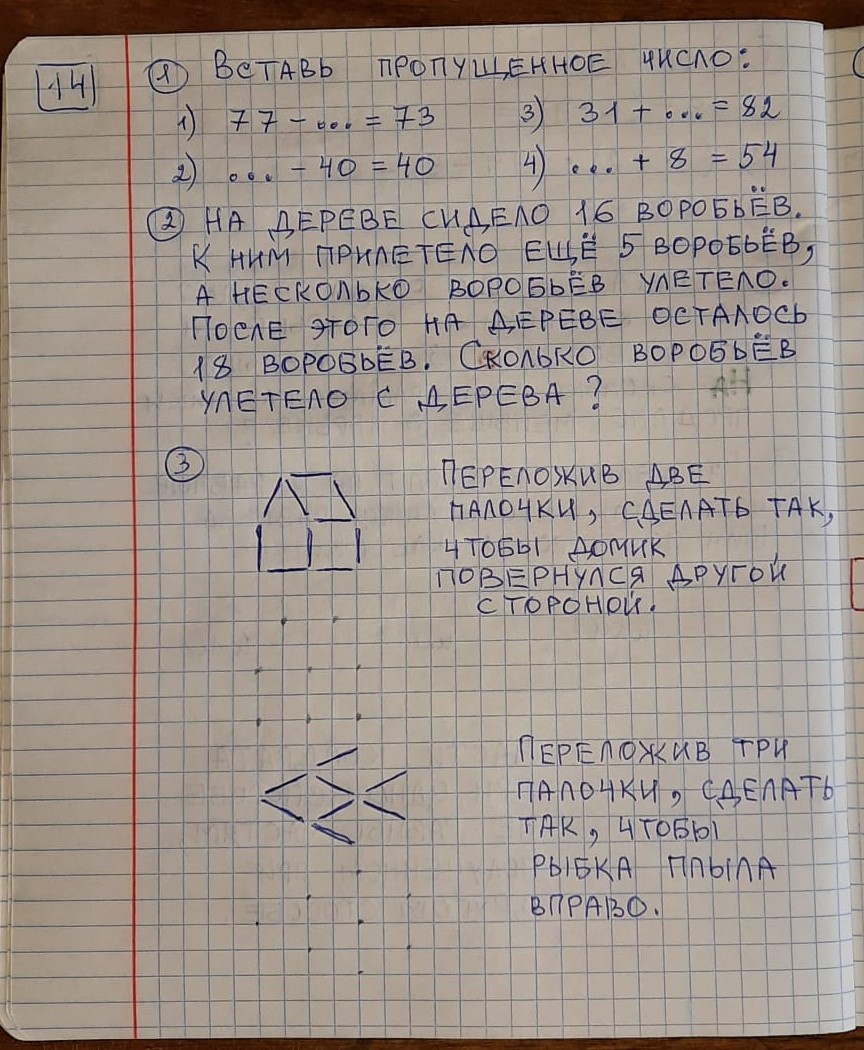 14
1 Вставь пропущенное число:
1) 77 - ... = 73 3) 31 + ... = 82
2) ... - 40 = 40 4) ... + 8 = 54
2 На дереве сидело 16 воробьёв.
К ним прилетело ещё 5 воробьёв,
а несколько воробьёв улетело.
После этого на дереве осталось
18 воробьёв. Сколько воробьёв
улетело с дерева?
3 Переложив две
палочки, сделать так,
чтобы домик
повернулся другой
стороной.
Переложив три
палочки, сделать
так, чтобы
рыбка плыла
вправо.